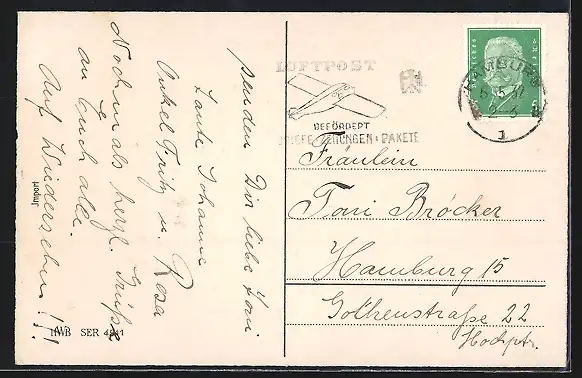 senden Dir liebe Toni
Tante Johanne
Onkel Fritz u. Rosa
Nochmals herzl. Grüße
an Euch alle.
Auf Wiedersehen!!
Import
HWB SER
LUFTPOST
BEFÖRDERT
BRIEFE ZEITUNGEN PAKETE
HAMBURG
1
Fräulein
Toni Bröcker
Hamburg 15
Gothenstraße 22
Hochptr.